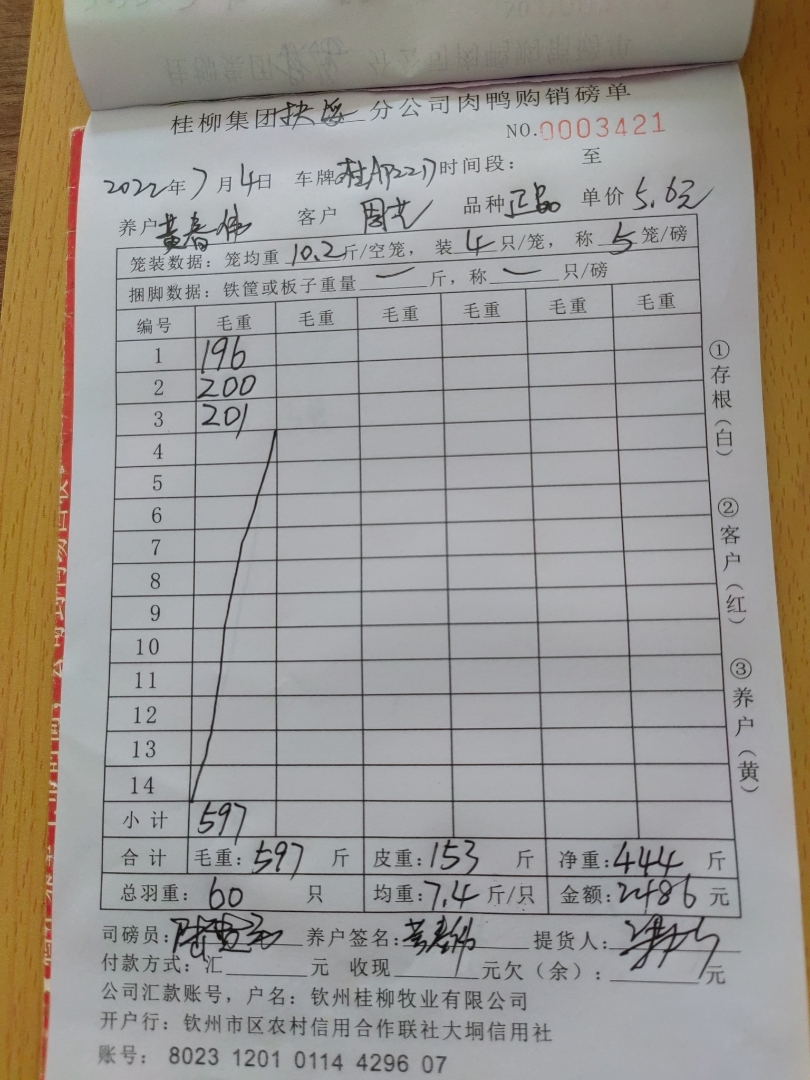 桂柳集团扶绥分公司肉鸭购销磅单
NO.0003421
2022年7月4日 车牌桂AP2217时间段： 至
养户黄春伟 客户 周芒 品种正品 单价5.6元
笼装数据：笼均重10.2斤/空笼，装4只/笼，称5笼/磅
捆脚数据：铁筐或板子重量一斤，称一只/磅
编号 毛重 毛重 毛重 毛重 毛重 毛重
1 196
2 200
3 201
4
5
6
7
8
9
10
11
12
13
14
小计 597
合计 毛重：597斤 皮重：153斤 净重：444斤
总羽重：60只 均重：7.4斤/只 金额：2486元
司磅员： 养户签名：黄春伟 提货人：
付款方式：汇 元 收现 元欠（余）： 元
公司汇款账号，户名：钦州桂柳牧业有限公司
开户行：钦州市区农村信用合作联社大垌信用社
账号： 8023 1201 0114 4296 07
①存根（白） ②客户（红） ③养户（黄）